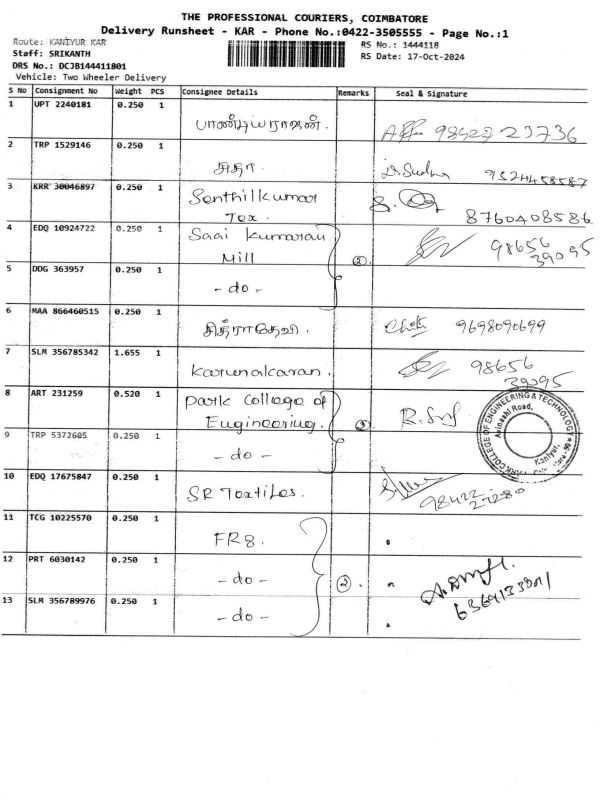 THE PROFESSIONAL COURIERS, COIMBATORE
Delivery Runsheet - KAR - Phone No.:0422-3505555 - Page No.:1
Route: KANIYUR KAR
RS No.: 1444118
Staff: SRIKANTH
RS Date: 17-Oct-2024
DRS No.: DCJB144411801
Vehicle: Two Wheeler Delivery
S No Consignment No Weight PCS Consignee Details Remarks Seal & Signature
1 UPT 2240181 0.250 1
பாண்டியராஜன். 98422 23736
2 TRP 1529146 0.250 1
சுதா 9524458587
3 KRR 30046897 0.250 1 Senthilkumar
Tex. 8760408586
4 EDQ 10924722 0.250 1 Saai Kumaran
Mill 2 98656
39095
5 DDG 363957 0.250 1
- do -
6 MAA 866460515 0.250 1
சித்ராதேவி. 9698090699
7 SLM 356785342 1.655 1
Karunakaran. 98656
39095
8 ART 231259 0.520 1 Park College of
Engineering.
PARK COLLEGE OF ENGINEERING & TECHNOLOGY
Avinashi Road,
Kaniyur,
9 TRP 5372605 0.250 1
- do -
10 EDQ 17675847 0.250 1
SR Textiles. 98422
27280
11 TCG 10225570 0.250 1
FR8.
12 PRT 6030142 0.250 1
- do - 2
13 SLM 356789976 0.250 1
- do -